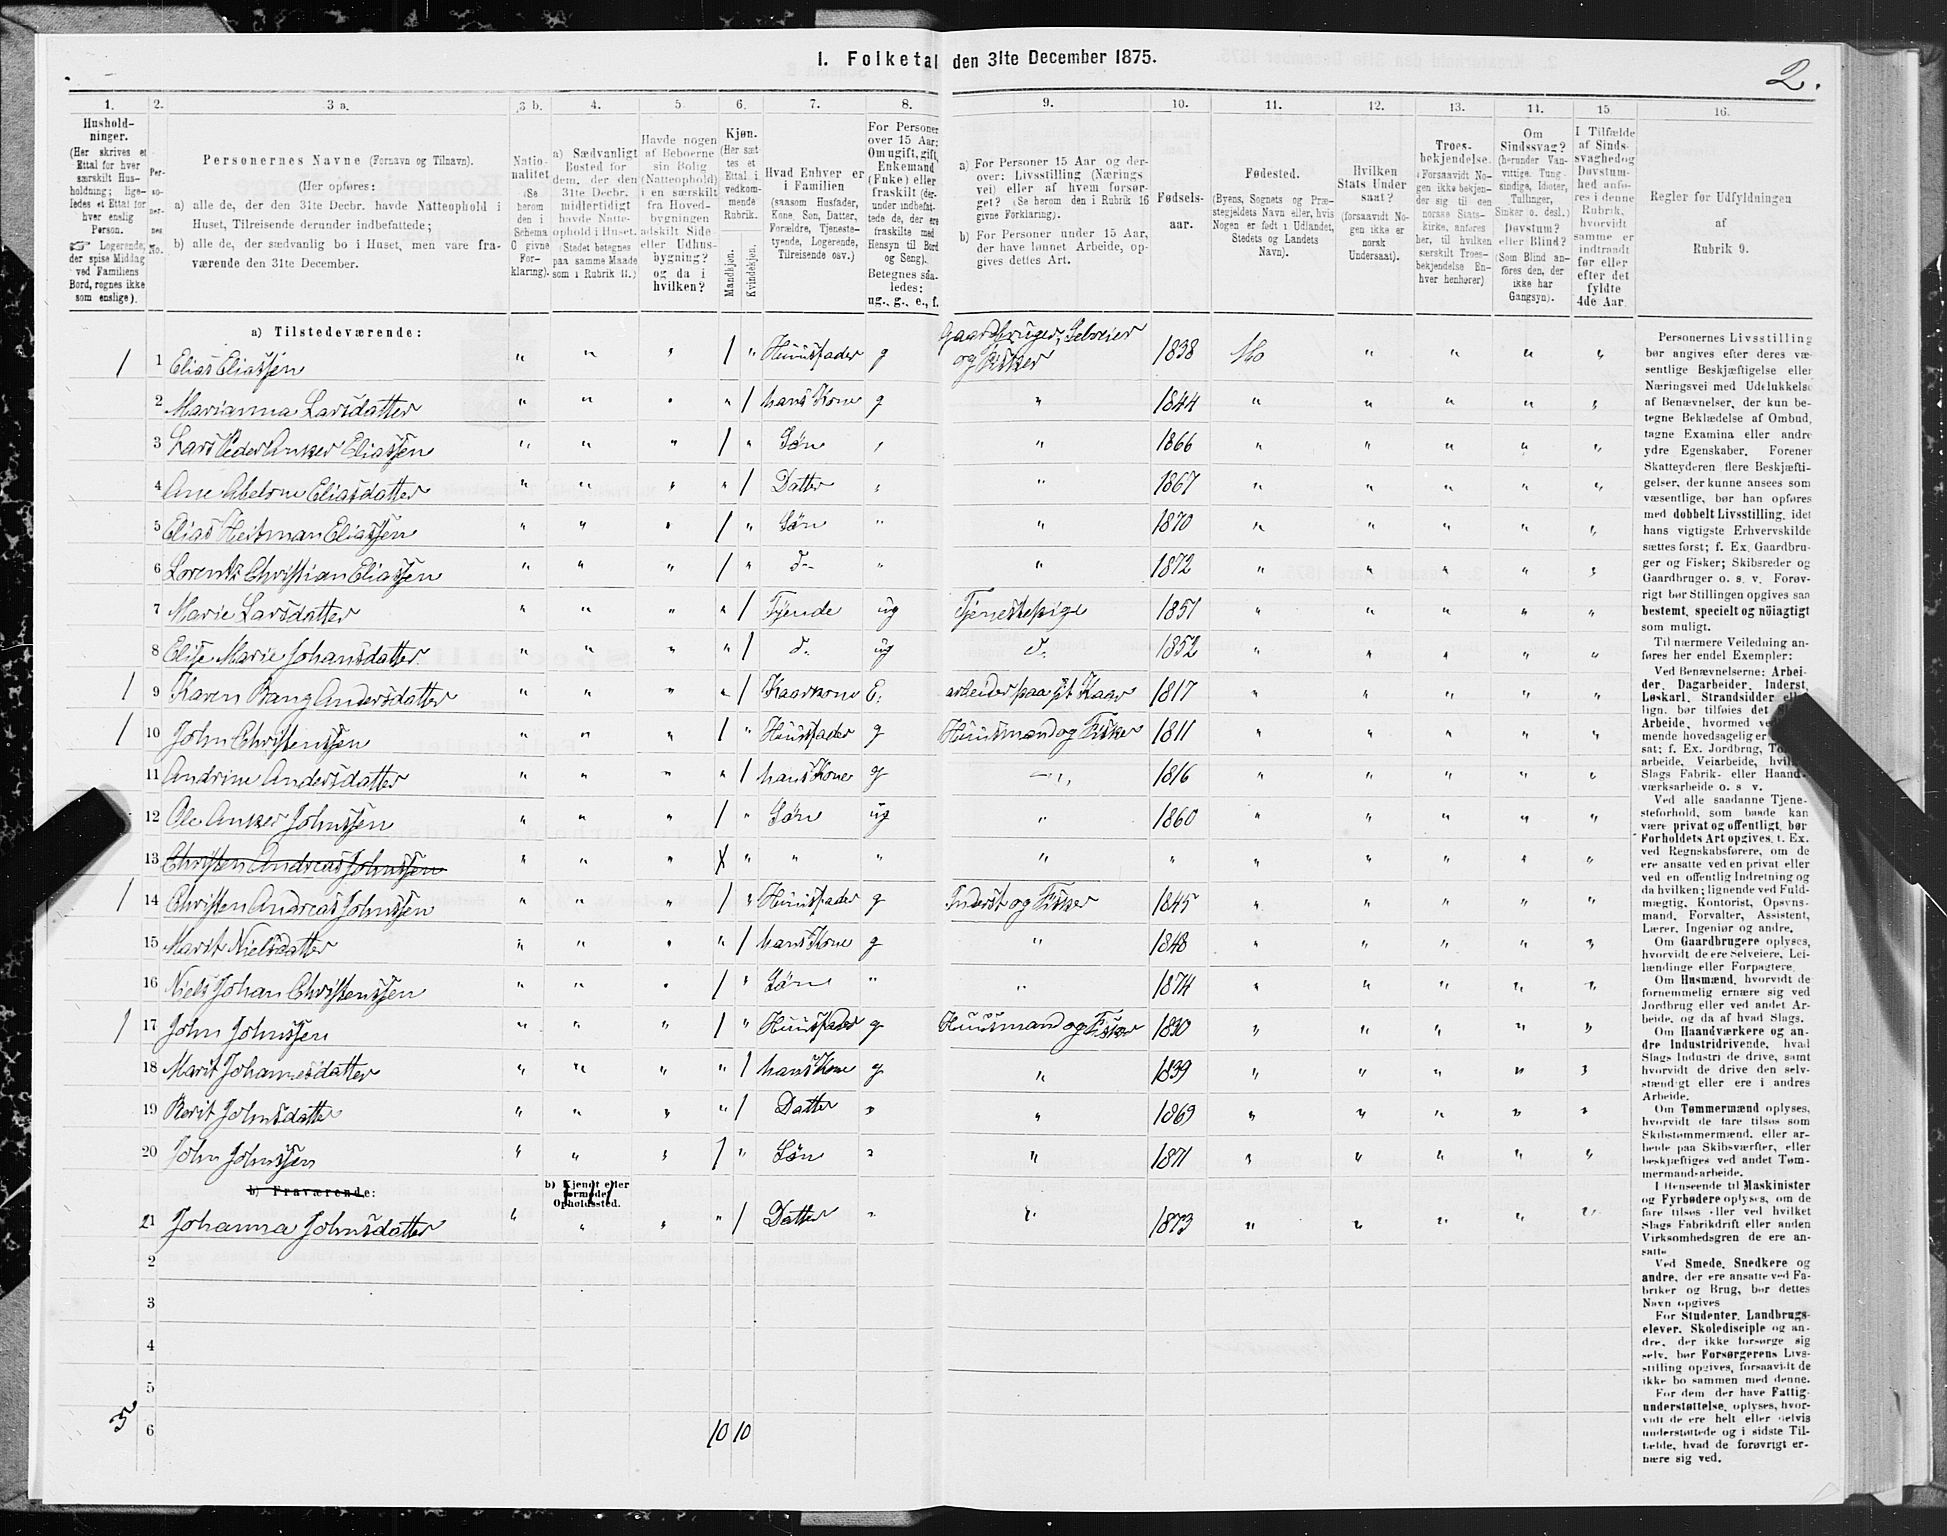 1. Folketal den 31te December 1875.
2.
1. 2. 3 a. 3 b. 4. 5. 6. 7. 8. 9. 10. 11. 12. 13. 14. 15. 16.
Hushold-
ninger.
(Her skrives et
Ettal for hver
særskilt Hus-
holdning; lige-
ledes et Ettal for
hver enslig
Person.
☞ Logerende,
der spise Middag
ved Familiens
Bord, regnes ikke
som enslige).
Per-
so-
ner-
nes
No.
Personernes Navne (Fornavn og Tilnavn).
(Her opføres:
a) alle de, der den 31te Decbr. havde Natteophold i
Huset, Tilreisende derunder indbefattede;
b) alle de, der sædvanlig bo i Huset, men vare fra-
værende den 31te December.
Natio-
nalitet
(Se
herom
den i
Schema
C givne
For-
klaring).
a) Sædvanligt
Bosted for
dem, der den
31te Decbr.
midlertidigt
havde Natte-
ophold i Huset.
(Stedet betegnes
paa samme Maade
som i Rubrik 11.)
Havde nogen
af Beboerne
sin Bolig
(Natteophold)
i en særskilt
fra Hoved-
bygningen
adskilt Side-
eller Udhus-
bygning?
og da i
hvilken?
Kjøn.
(Her sæt-
tes et
Ettal i
vedkom-
mende
Rubrik.
Mandkjøn.
Kvindekjøn.
Hvad Enhver er
i Familien
(saasom Husfader,
Kone, Søn, Datter,
Forældre, Tjeneste-
tyende, Logerende,
Tilreisende osv.)
For Personer
over 15 Aar:
Om ugift, gift,
Enkemand
(Enke) eller
fraskilt (der-
under indbefat-
tede de, der ere
fraskilte med
Hensyn til Bord
og Seng).
Betegnes saa-
ledes:
ug., g., e., f.
a) For Personer 15 Aar og der-
over: Livsstilling (Nærings-
vei) eller af hvem forsør-
get? (Se herom den i Rubrik 16
givne Forklaring).
b) For Personer under 15 Aar,
der have lønnet Arbeide, op-
gives dettes Art.
Fødsels-
aar.
Fødested.
(Byens, Sognets og Præ-
stegjeldets Navn eller, hvis
Nogen er født i Udlandet,
Stedets og Landets
Navn).
Hvilken
Stats Under
saat?
(forsaavidt No-
gen ikke er
norsk
Undersaat).
Troes-
bekjendelse.
(Forsaavidt No-
gen ikke bekjen-
der sig til den
norske Stats-
kirke, anføres
her, til hvilken
særskilt Troes-
bekjendelse En-
hver henhører)
Om
Sindssvag?
(herunder Van-
vittige, Tung-
sindige, Idioter,
Tullinger,
Sinker o. desl.)
Døvstum?
eller Blind?
(Som Blind an-
føres den, der
ikke har
Gangsyn).
I Tilfælde
af Sinds-
svaghed og
Døvstum-
hed anfø-
res i denne
Rubrik,
hvorvidt
samme er
indtraadt
før eller
efter det
fyldte
4de Aar.
Regler for Udfyldningen
af
Rubrik 9.
a) Tilstedeværende:
1 1 Elias Eliassen " " " 1 " Huusfader g Gaardbruger, Selveier og Fisker 1838 Mo " " " "
2 Marianna Larsdatter " " " " 1 hans Kone g " 1844 " " " " "
3 Lars Peder Anker Eliassen " " " 1 " Søn " " 1866 " " " " "
4 Ane Abelone Eliasdatter " " " " 1 Datter " " 1867 " " " " "
5 Elias Heitman Eliassen " " " 1 " Søn " " 1870 " " " " "
6 Lorents Christian Eliassen " " " 1 " d- " " 1872 " " " " "
7 Marie Larsdatter " " " " 1 Tjende ug Tjenestepige 1851 " " " " "
8 Elise Marie Johansdatter " " " " 1 d. ug d. 1852 " " " " "
1 9 Karen Bang Andersdatter " " " " 1 Kaarkone E. arbeider paa sit Kaar 1817 " " " " "
1 10 John Christenssen " " " 1 " Huusfader g Huusmand og Fisker 1811 " " " " "
11 Andrine Andersdatter " " " " 1 hans Kone g -"- 1816 " " " " "
12 Ole Anker Johnssen " " " 1 " Søn ug " 1860 " " " " "
13 Christen Andreas Johnssen " " " X " " " " " " " " " "
1 14 Christen Andreas Johnssen " " " 1 " Huusfader g Inderst og Fisker 1845 " " " " "
15 Marit Nielsdatter " " " " 1 hans Kone g " 1848 " " " " "
16 Niels Johan Christenssen " " " 1 " Søn " " 1874 " " " " "
1 17 John Johnssen " " " 1 " Huusfader g Huusmand og Fisker 1830 " " " " "
18 Marit Johannesdatter " " " " 1 hans Kone g " 1839 " " " " "
19 Berit Johnsdatter " " " " 1 Datter " " 1869 " " " " "
20 John Johnssen " " " 1 " Søn " " 1871 " " " " "
b) Fraværende:
b) Kjendt eller
formodet
Opholdssted.
21 Johanna Johnsdatter " " " " 1 Datter " " 1873 " " " " "
2
3
4
5
5 6 10 10
Personernes Livsstilling
bør angives efter deres væ-
sentlige Beskjæftigelse eller
Næringsvei med Udelukkelse
af Benævnelser, der kun be-
tegne Beklædelse af Ombud,
tagne Examina eller andre
ydre Egenskaber. Forener
Skatteyderen flere Beskjæfti-
gelser, der kunne ansees som
væsentlige, bør han opføres
med dobbelt Livsstilling, idet
hans vigtigste Erhvervskilde
sættes først; f. Ex. Gaardbru-
ger og Fisker; Skibsreder og
Gaardbruger o. s. v. Forøv-
rigt bør Stillingen opgives saa
bestemt, specielt og nöiagtigt
som muligt.
Til nærmere Veiledning an-
føres her endel Exempler:
Ved Benævnelserne: Arbei-
der, Dagarbeider, Inderst,
Løskarl, Strandsidder
lign. bør tilføies det
Arbeide, hvormed
mende hovedsagelig er
sat; f. Ex. Jordbrug,
arbeide, Veiarbeide,
Slags Fabrik- eller Haand-
værksarbeide o. s. v.
Ved alle saadanne Tjene-
steforhold, som baade kan
være privat og offentligt, bør
Forholdets Art opgives, t. Ex.
ved Regnskabsførere, om de
ere ansatte ved en privat eller
ved en offentlig Indretning og
da hvilken; lignende ved Fuld-
mægtig, Kontorist, Opsyns-
mand, Forvalter, Assistent,
Lærer, Ingeniør og andre.
Om Gaardbrugere oplyses,
hvorvidt de ere Selveiere, Lei-
lændinge eller Forpagtere.
Om Husmænd, hvorvidt de
fornemmelig ernære sig ved
Jordbrug eller ved andet Ar-
beide, og da af hvad Slags.
Om Haandværkere og an-
dre Industridrivende, hvad
Slags Industri de drive, samt
hvorvidt de drive den selv-
stændigt eller ere i andres
Arbeide.
Om Tømmermænd oplyses,
hvorvidt de fare tilsøs som
Skibstømmermænd, eller ar-
beide paa Skibsværfter, eller
beskjæftiges ved andet Tøm-
mermandsarbeide.
I Henseende til Maskinister
og Fyrbødere oplyses, om de
fare tilsøs eller ved hvilket
Slags Fabrikdrift eller anden
Virksomhedsgren de ere an-
satte
Ved Smede, Snedkere og
andre, der ere ansatte ved Fa-
briker og Brug, bør dettes
Navn opgives
For Studenter, Landbrugs-
elever, Skoledisciple og an-
dre, der ikke forsørge sig
selv, bør Forsørgerens Livs-
stilling opgives, forsaavidt de
ikke bo sammen med denne.
For dem der have Fattig-
understøttelse, oplyses, hvor-
vidt de ere helt eller delvis
understøttede og i sidste Til-
fælde, hvad de forøvrigt er-
nære sig ved.